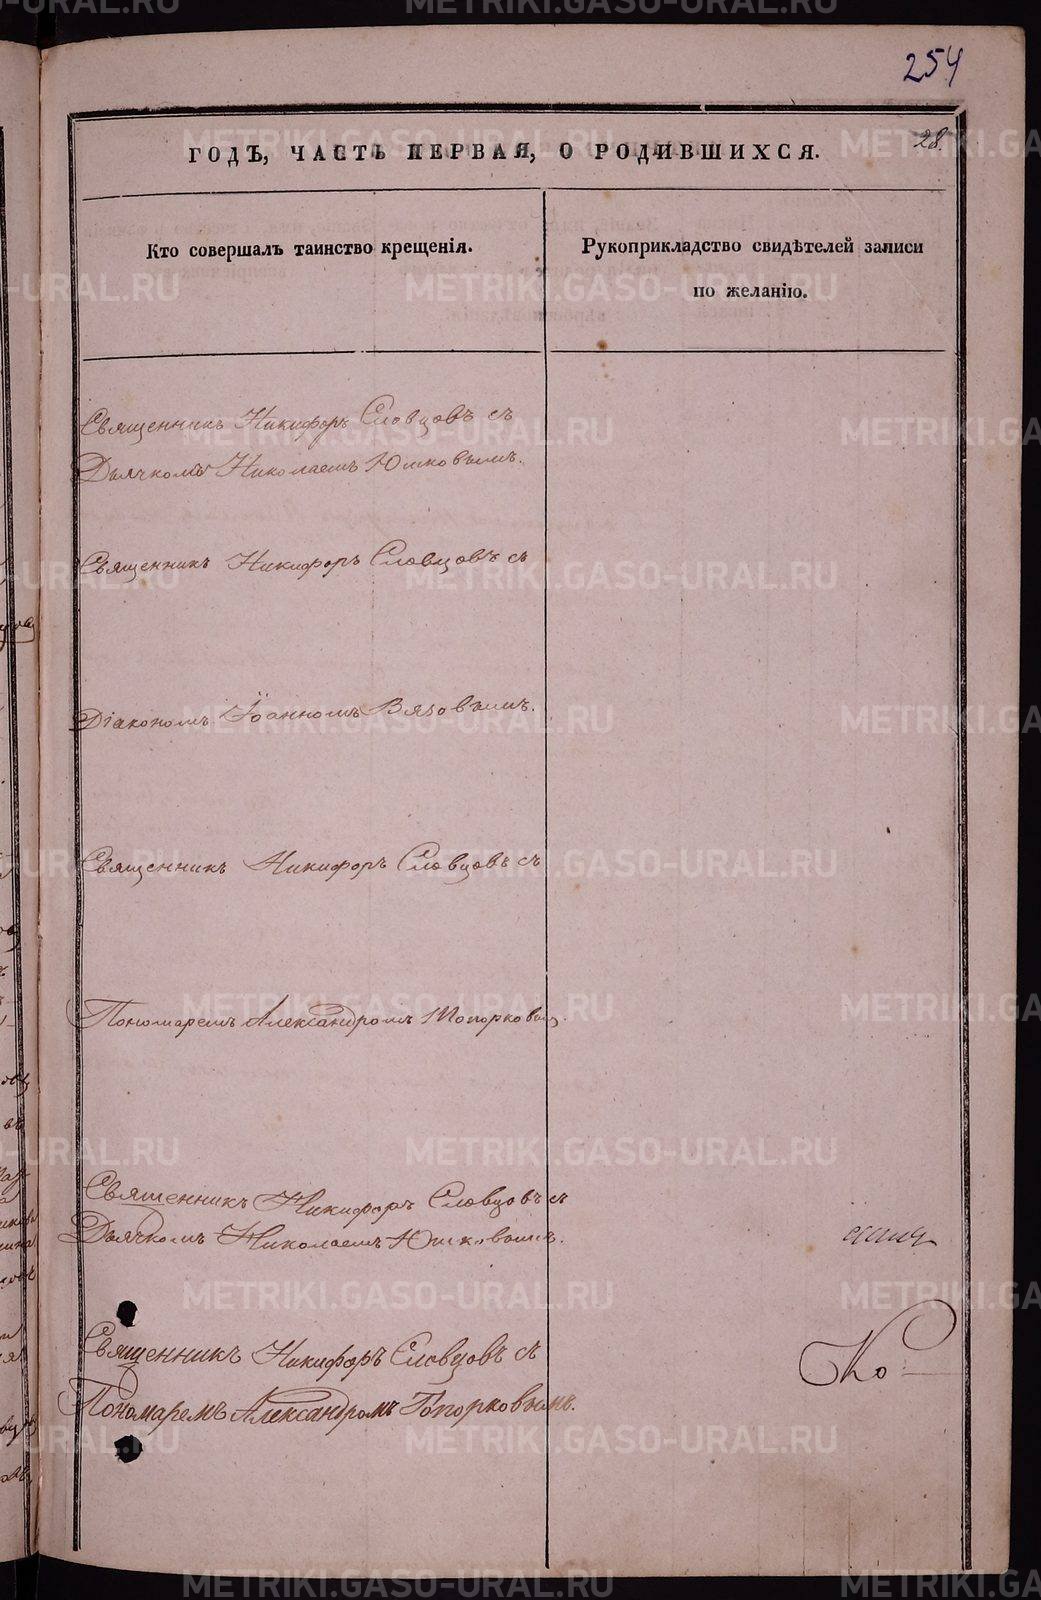 254
28.
ГОДЪ, ЧАСТЬ ПЕРВАЯ, О РОДИВШИХСЯ.
Кто совершалъ таинство крещенія.
Рукоприкладство свидѣтелей записи
по желанію.
Священникъ Никифоръ Словцовъ съ
Дьячкомъ Николаемъ Юшковымъ.
Священникъ Никифоръ Словцовъ съ
Діакономъ Іоанномъ Вязовымъ.
Священникъ Никифоръ Словцовъ съ
Пономаремъ Александромъ Топорковым.
Священникъ Никифоръ Словцовъ съ
Дьячкомъ Николаемъ Юшковымъ.
Священникъ Никифоръ Словцовъ съ
Ко
Пономаремъ Александромъ Топорковымъ.
METRIKI.GASO-URAL.RU